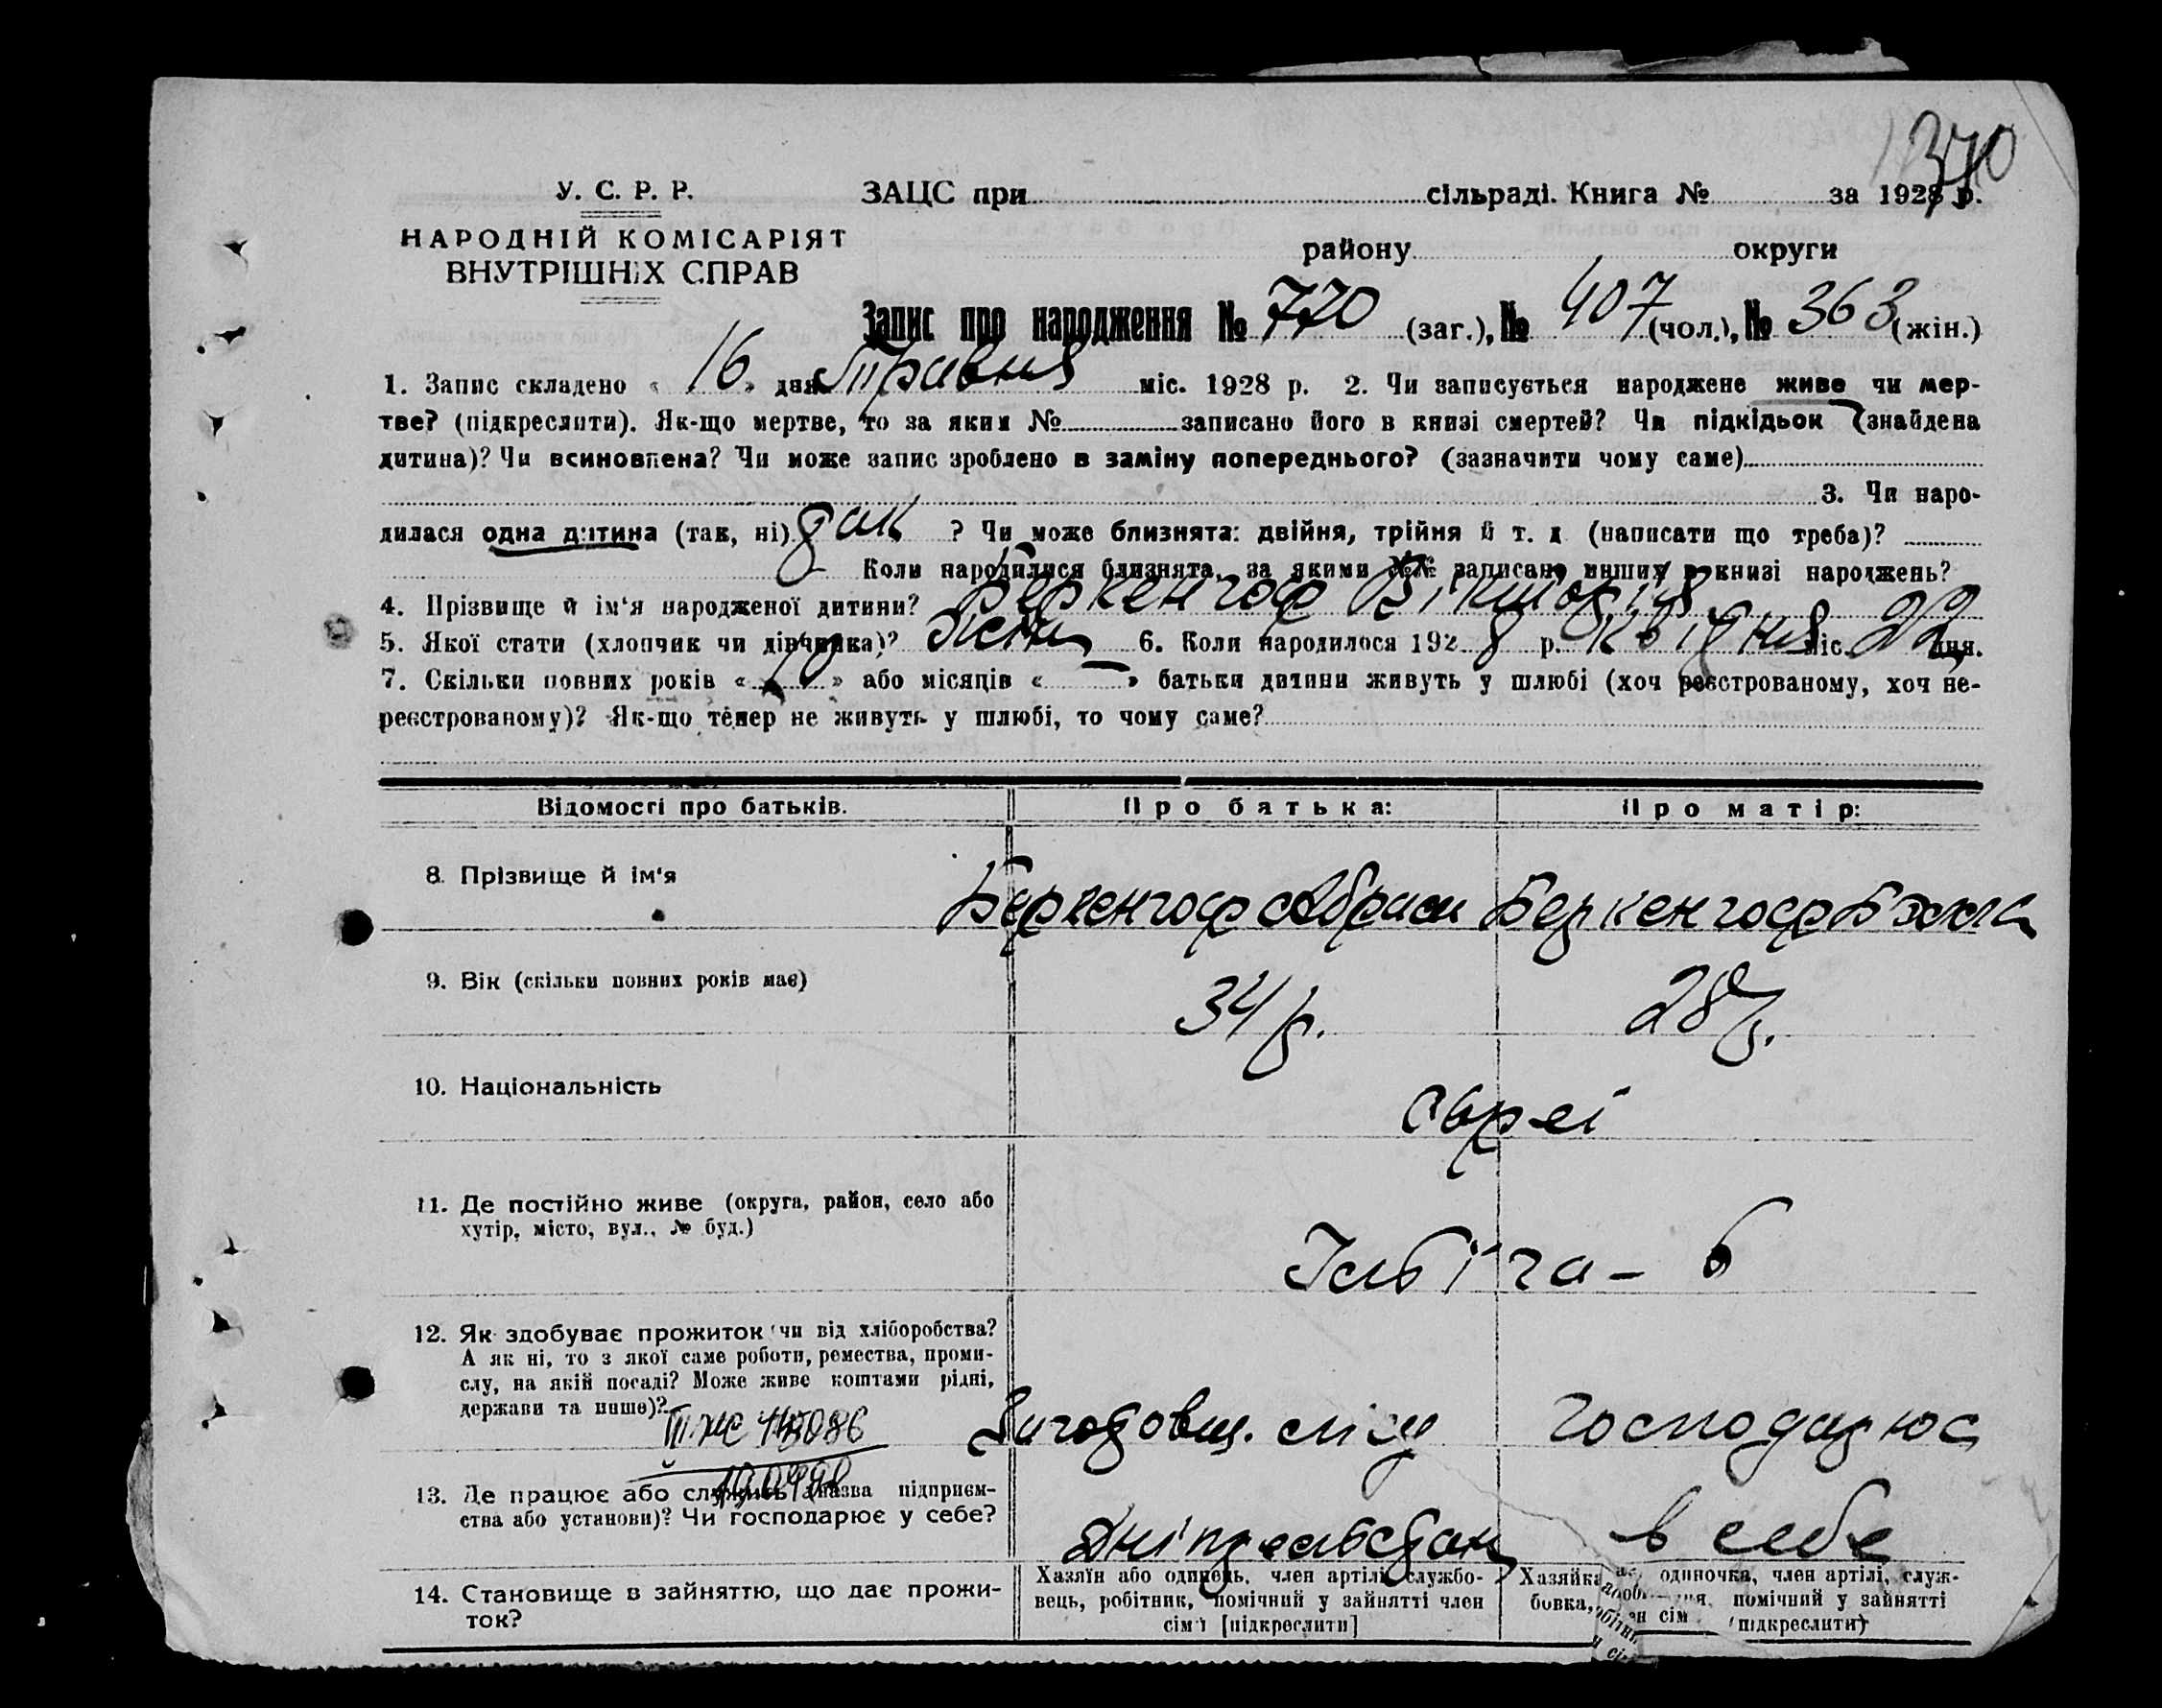 370
У. С. Р. Р.
ЗАЦС при сільраді. Книга № за 1928 р.
НАРОДНІЙ КОМІСАРІЯТ
ВНУТРІШНІХ СПРАВ
району округи
Запис про народження № 770 (заг.), № 407 (чол.), № 363 (жін.)
1. Запис складено « 16 » дня Травня міс. 1928 р. 2. Чи записується народжене живе чи мер-
тве? (підкреслити). Як-що мертве, то за яким № записано його в книзі смертей? Чи підкідьок (знайдена
дитина)? Чи всиновлена? Чи може запис зроблено в заміну попереднього? (зазначити чому саме)
3. Чи наро-
дилася одна дитина (так, ні) так ? Чи може близнята: двійня, трійня й т. д. (написати що треба)?
Коли народилися близнята, за якими №№ записано инших в книзі народжень?
4. Прізвище й ім'я народженої дитини? Беркенгоф Вікторія
5. Якої статі (хлопчик чи дівчинка)? жін. 6. Коли народилося 1928 р. Квітня міс. 22 дня.
7. Скільки повних років « 10 » або місяців « — » батьки дитини живуть у шлюбі (хоч реєстрованому, хоч не-
реєстрованому)? Як-що тепер не живуть у шлюбі, то чому саме?
Відомості про батьків. Про батька: Про матір:
8. Прізвище й ім'я Беркенгоф Абрам Беркенгоф Бэлла
9. Вік (скільки повних років має) 34 р. 28 р.
10. Національність євреї
11. Де постійно живе (округа, район, село або
хутір, місто, вул., № буд.)
6
12. Як здобуває прожиток чи від хліборобства?
А як ні, то з якої саме роботи, ремества, проми-
слу, на якій посаді? Може живе коштами рідні,
держави та инше)?
лісу господарює
13. Де працює або служить (назва підприєм-
ства або установи)? Чи господарює у себе?
в себе
14. Становище в зайняттю, що дає прожи-
ток?
Хазяїн або одинець, член артілі, службо-
вець, робітник, помічний у зайнятті член
сім'ї [підкреслити]
Хазяйка одиночка, член артілі, служ-
бовка, помічний у зайнятті
сім (підкреслити)